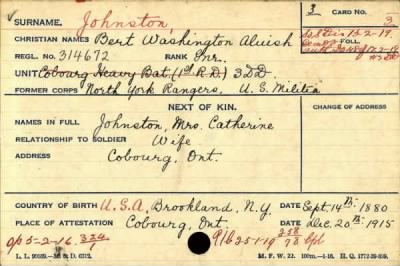 3 CARD No. 3
SURNAME. Johnston,
CHRISTIAN NAMES Bert Washington Aluish
REGL. No. 314672 RANK Gnr.
FOLL.
UNIT Cobourg Heavy Bat. (1st R.D.) 3DD
FORMER CORPS North York Rangers, U.S. Militia
NEXT OF KIN. CHANGE OF ADDRESS
NAMES IN FULL Johnston, Mrs. Catherine
RELATIONSHIP TO SOLDIER Wife
ADDRESS Cobourg, Ont.
COUNTRY OF BIRTH U.S.A., Brookland, N.Y. DATE Sept. 14th 1880
PLACE OF ATTESTATION Cobourg, Ont. DATE Dec. 20th 1915
5-2-16 334 25-1-19 258
L. L. 90589.—M. & D. 6312. M. F. W. 22.